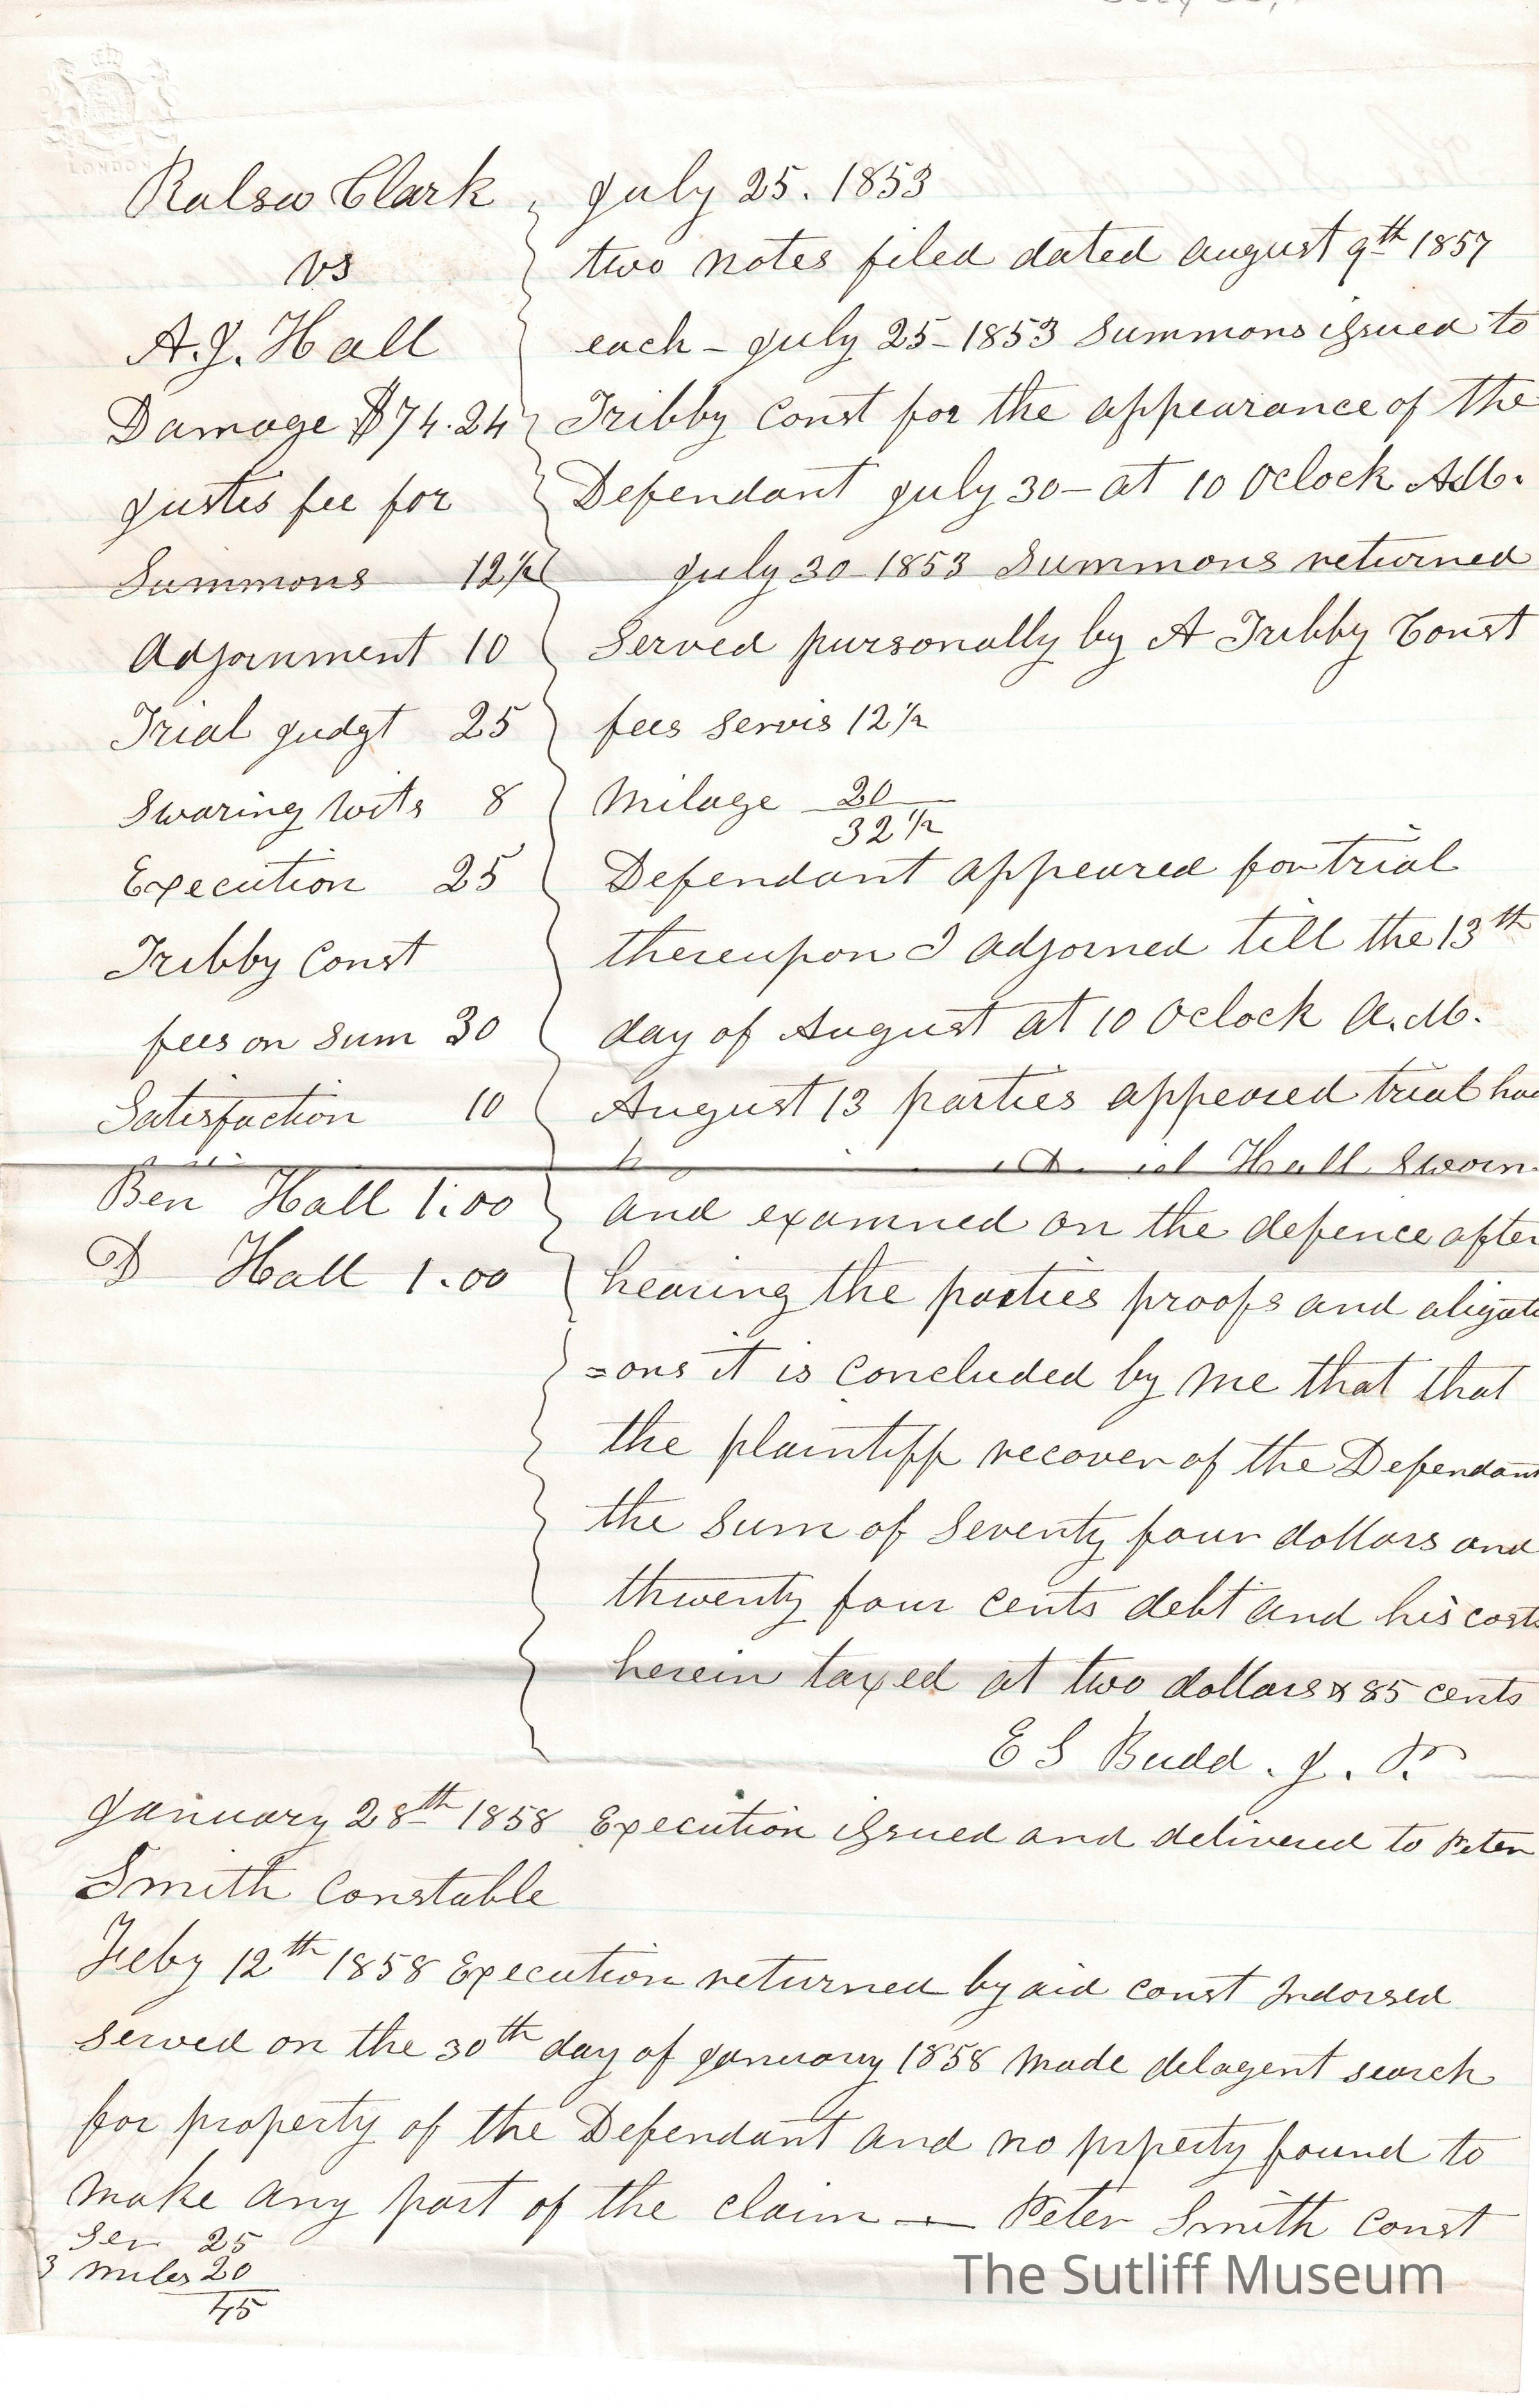 LONDON
Ralsa Clark
vs
A.J. Hall
Damage $74.24
justis fee for
Summons 12½
Adjornment 10
Trial judgt 25
Swaring wits 8
Execution 25
Tribby Const
fees on sum 30
Satisfaction 10
Ben Hall 1.00
D Hall 1.00
July 25. 1853
two notes filed dated august 9th 1857
each - July 25 - 1853 Summons issued to
Tribby Const for the appearance of the
Defendant july 30 - at 10 Oclock A.M.
july 30 1853 Summons returned
Served pursonally by A Tribby Const
fees servis 12½
Milage 20
32½
Defendant appeared for trial
thereupon I adjorned till the 13th
day of August at 10 Oclock A.M.
August 13 parties appeared trial had
Hall sworn
and examned on the defence after
hearing the parties proofs and aligati
=ons it is concluded by me that that
the plaintiff recover of the Defendant
the sum of seventy four dollars and
thwenty four cents debt and his costs
herein taxed at two dollars & 85 cents
E S Budd. J. P.
January 28th 1858 Execution issued and delivered to Peter
Smith Constable
Feby 12th 1858 Execution returned by aid const Indorsed
served on the 30th day of January 1858 made delagent search
for property of the Defendant and no prperty found to
make any part of the claim — Peter Smith Const
Ser 25
3 miles 20
45
The Sutliff Museum